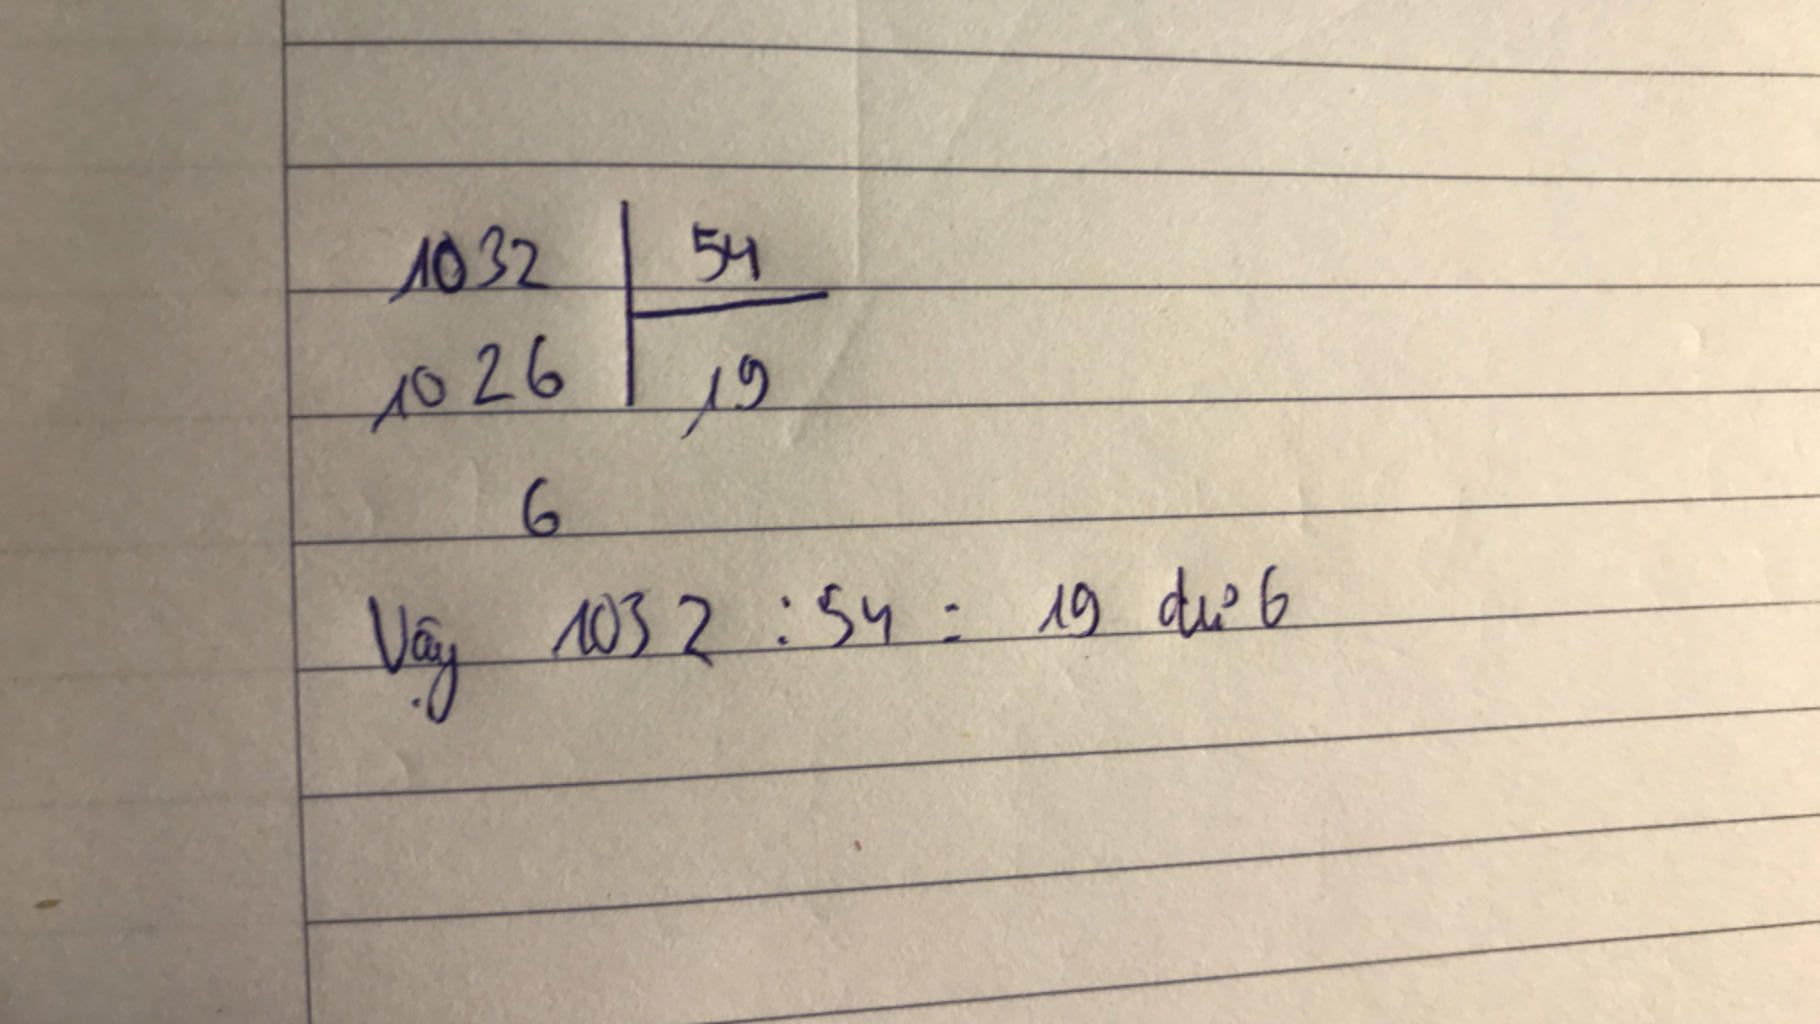 1032 54
1026 19
6
Vậy 1032 : 54 = 19 dư 6